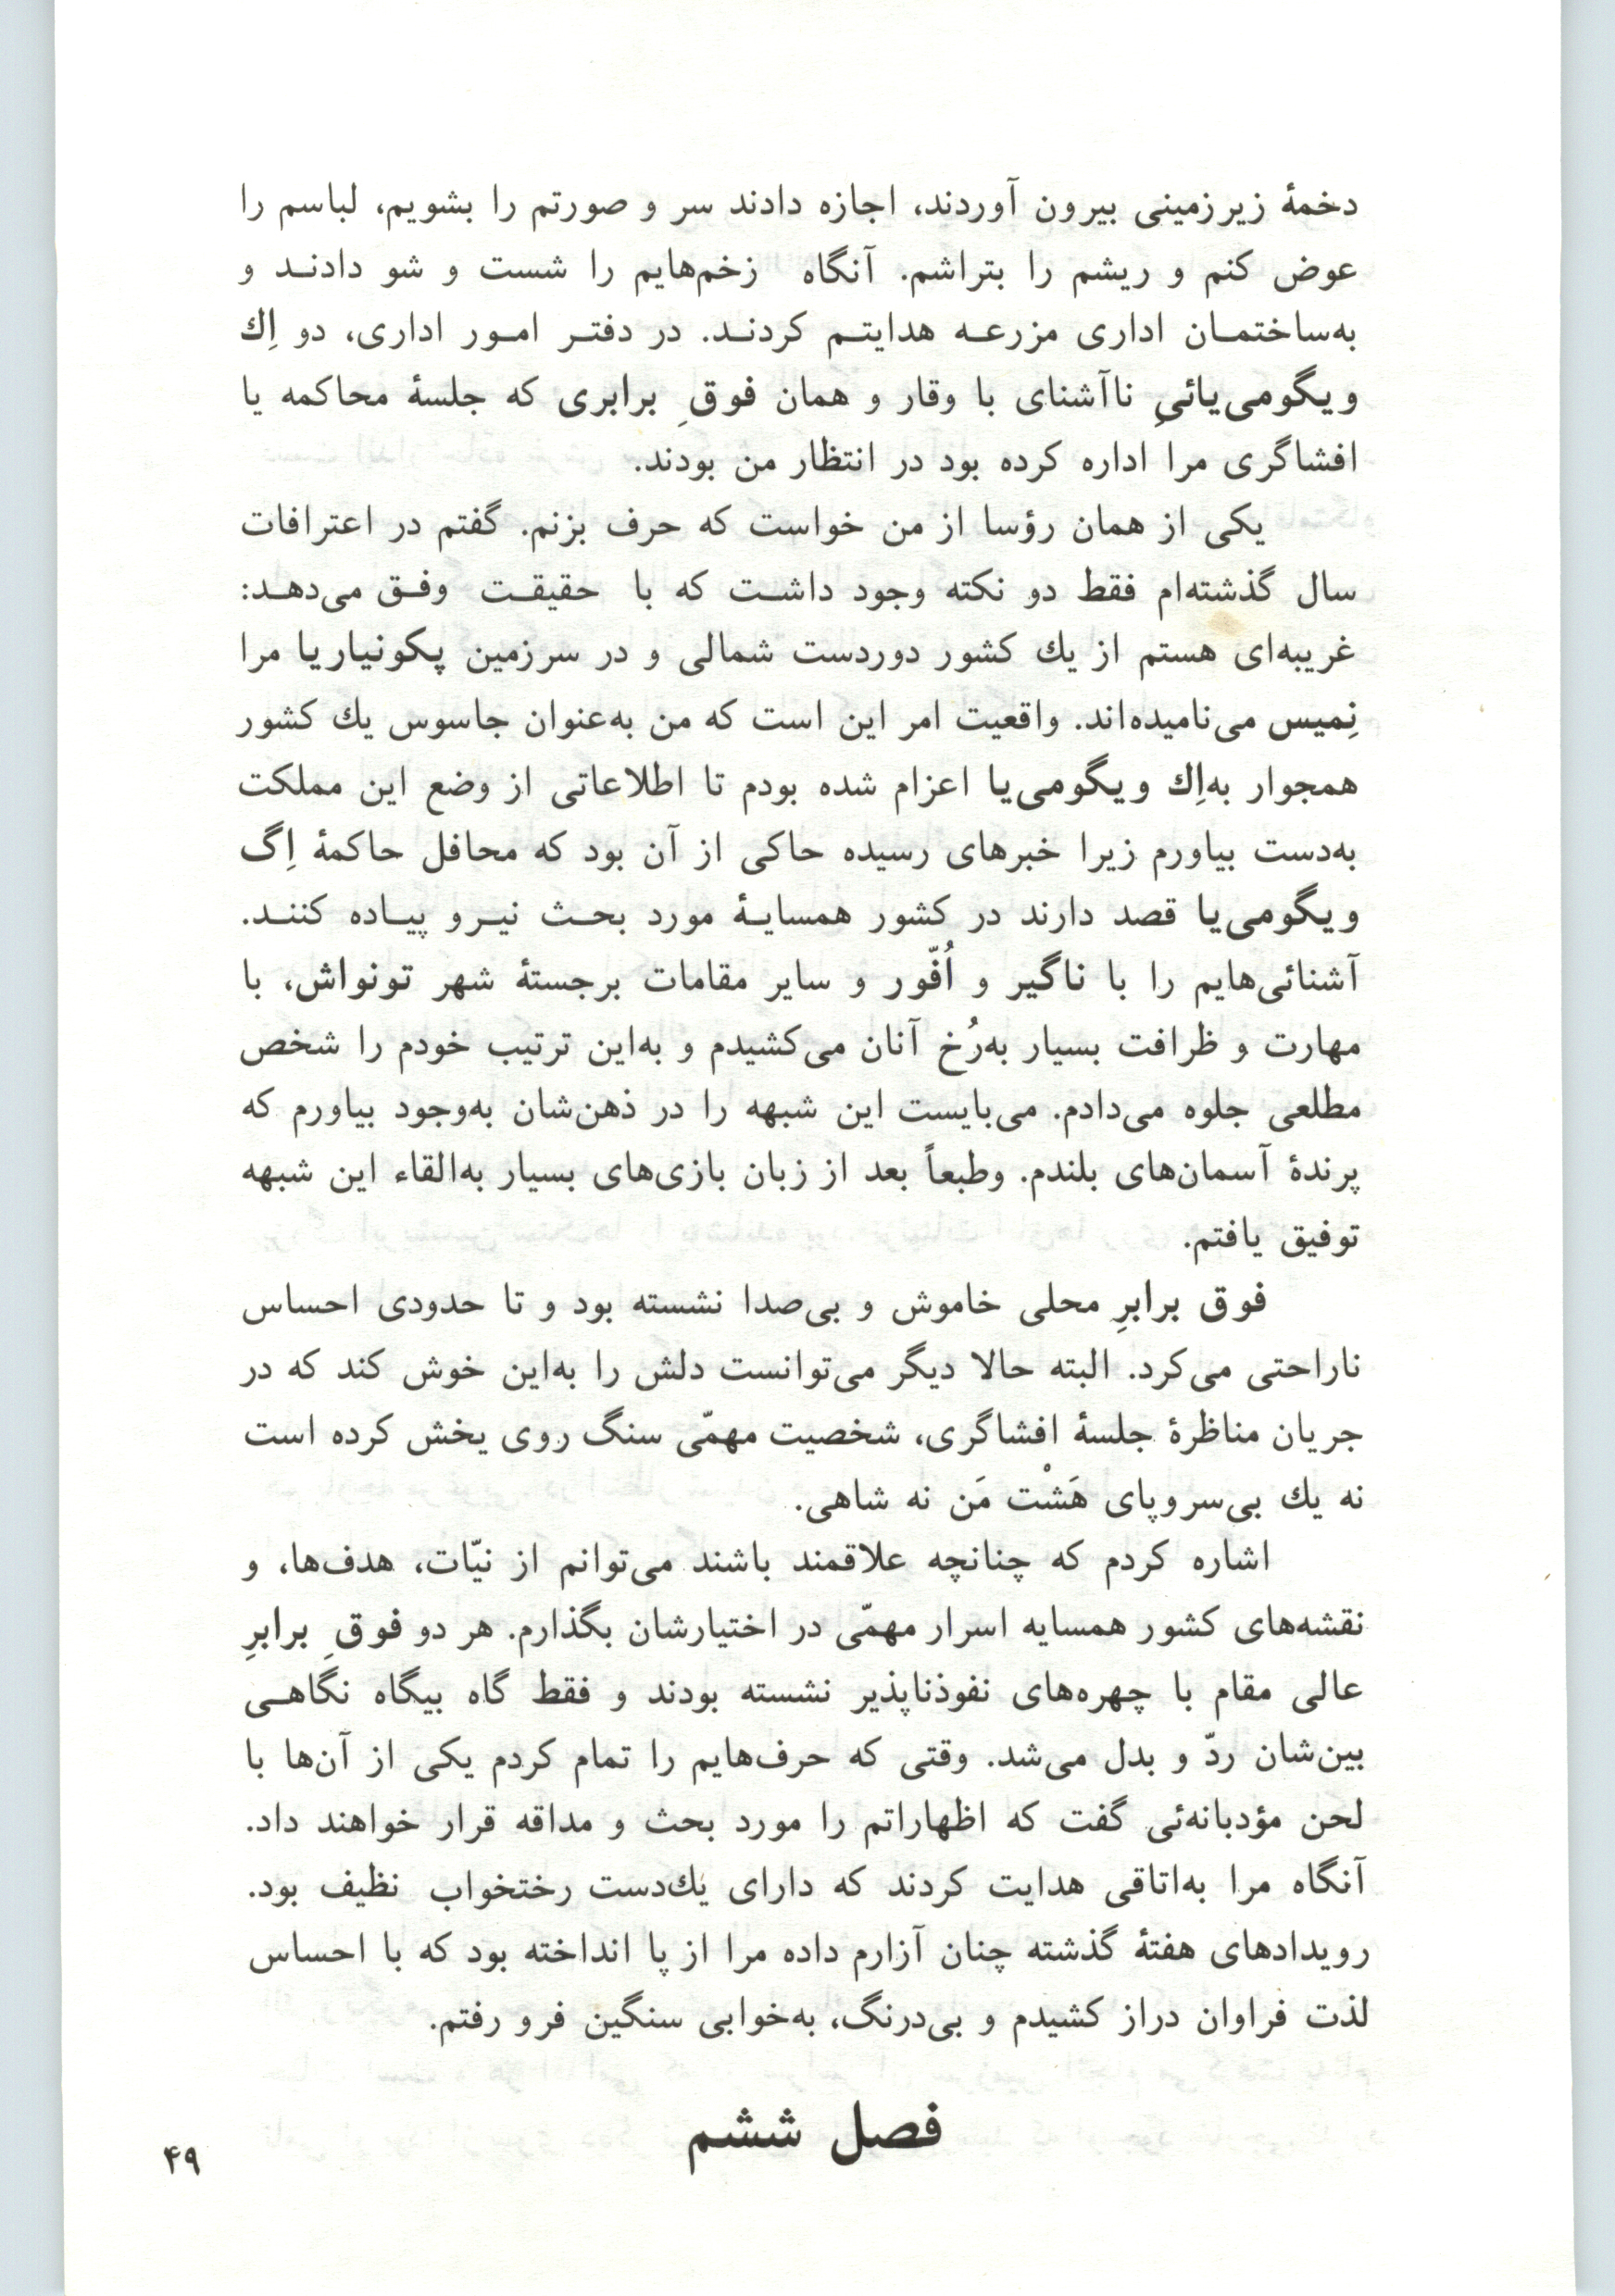 دخمهٔ زیرزمینی بیرون آوردند، اجازه دادند سر و صورتم را بشویم، لباسم را
عوض کنم و ریشم را بتراشم. آنگاه زخم‌هایم را شست و شو دادند و
به‌ساختمان اداری مزرعه هدایتم کردند. در دفتر امور اداری، دو اِك
ویگومی‌یائیِ ناآشنای با وقار و همان فوقِ برابری که جلسهٔ محاکمه یا
افشاگری مرا اداره کرده بود در انتظار من بودند.
یکی از همان رؤسا از من خواست که حرف بزنم. گفتم در اعترافات
سال گذشته‌ام فقط دو نکته وجود داشت که با حقیقت وفق می‌دهد:
غریبه‌ای هستم از یك کشور دوردست شمالی و در سرزمین پکونیاریا مرا
نِمیس می‌نامیده‌اند. واقعیت امر این است که من به‌عنوان جاسوس یك کشور
همجوار به‌اِك ویگومی‌یا اعزام شده بودم تا اطلاعاتی از وضع این مملکت
به‌دست بیاورم زیرا خبرهای رسیده حاکی از آن بود که محافل حاکمهٔ اِگ
ویگومی‌یا قصد دارند در کشور همسایهٔ مورد بحث نیرو پیاده کنند.
آشنائی‌هایم را با ناگیر و اُفّور و سایر مقامات برجستهٔ شهر تونواش، با
مهارت و ظرافت بسیار به‌رُخ آنان می‌کشیدم و به‌این ترتیب خودم را شخص
مطلعی جلوه می‌دادم. می‌بایست این شبهه را در ذهن‌شان به‌وجود بیاورم که
پرندهٔ آسمان‌های بلندم. وطبعاً بعد از زبان بازی‌های بسیار به‌القاء این شبهه
توفیق یافتم.
فوق برابرِ محلی خاموش و بی‌صدا نشسته بود و تا حدودی احساس
ناراحتی می‌کرد. البته حالا دیگر می‌توانست دلش را به‌این خوش کند که در
جریان مناظرهٔ جلسهٔ افشاگری، شخصیت مهمّی سنگ روی یخش کرده است
نه یك بی‌سروپای هَشْت مَن نه شاهی.
اشاره کردم که چنانچه علاقمند باشند می‌توانم از نیّات، هدف‌ها، و
نقشه‌های کشور همسایه اسرار مهمّی در اختیارشان بگذارم. هر دو فوقِ برابرِ
عالی مقام با چهره‌های نفوذناپذیر نشسته بودند و فقط گاه بیگاه نگاهی
بین‌شان ردّ و بدل می‌شد. وقتی که حرف‌هایم را تمام کردم یکی از آن‌ها با
لحن مؤدبانه‌ئی گفت که اظهاراتم را مورد بحث و مداقه قرار خواهند داد.
آنگاه مرا به‌اتاقی هدایت کردند که دارای یك‌دست رختخواب نظیف بود.
رویدادهای هفتهٔ گذشته چنان آزارم داده مرا از پا انداخته بود که با احساس
لذت فراوان دراز کشیدم و بی‌درنگ، به‌خوابی سنگین فرو رفتم.
فصل ششم
۴۹